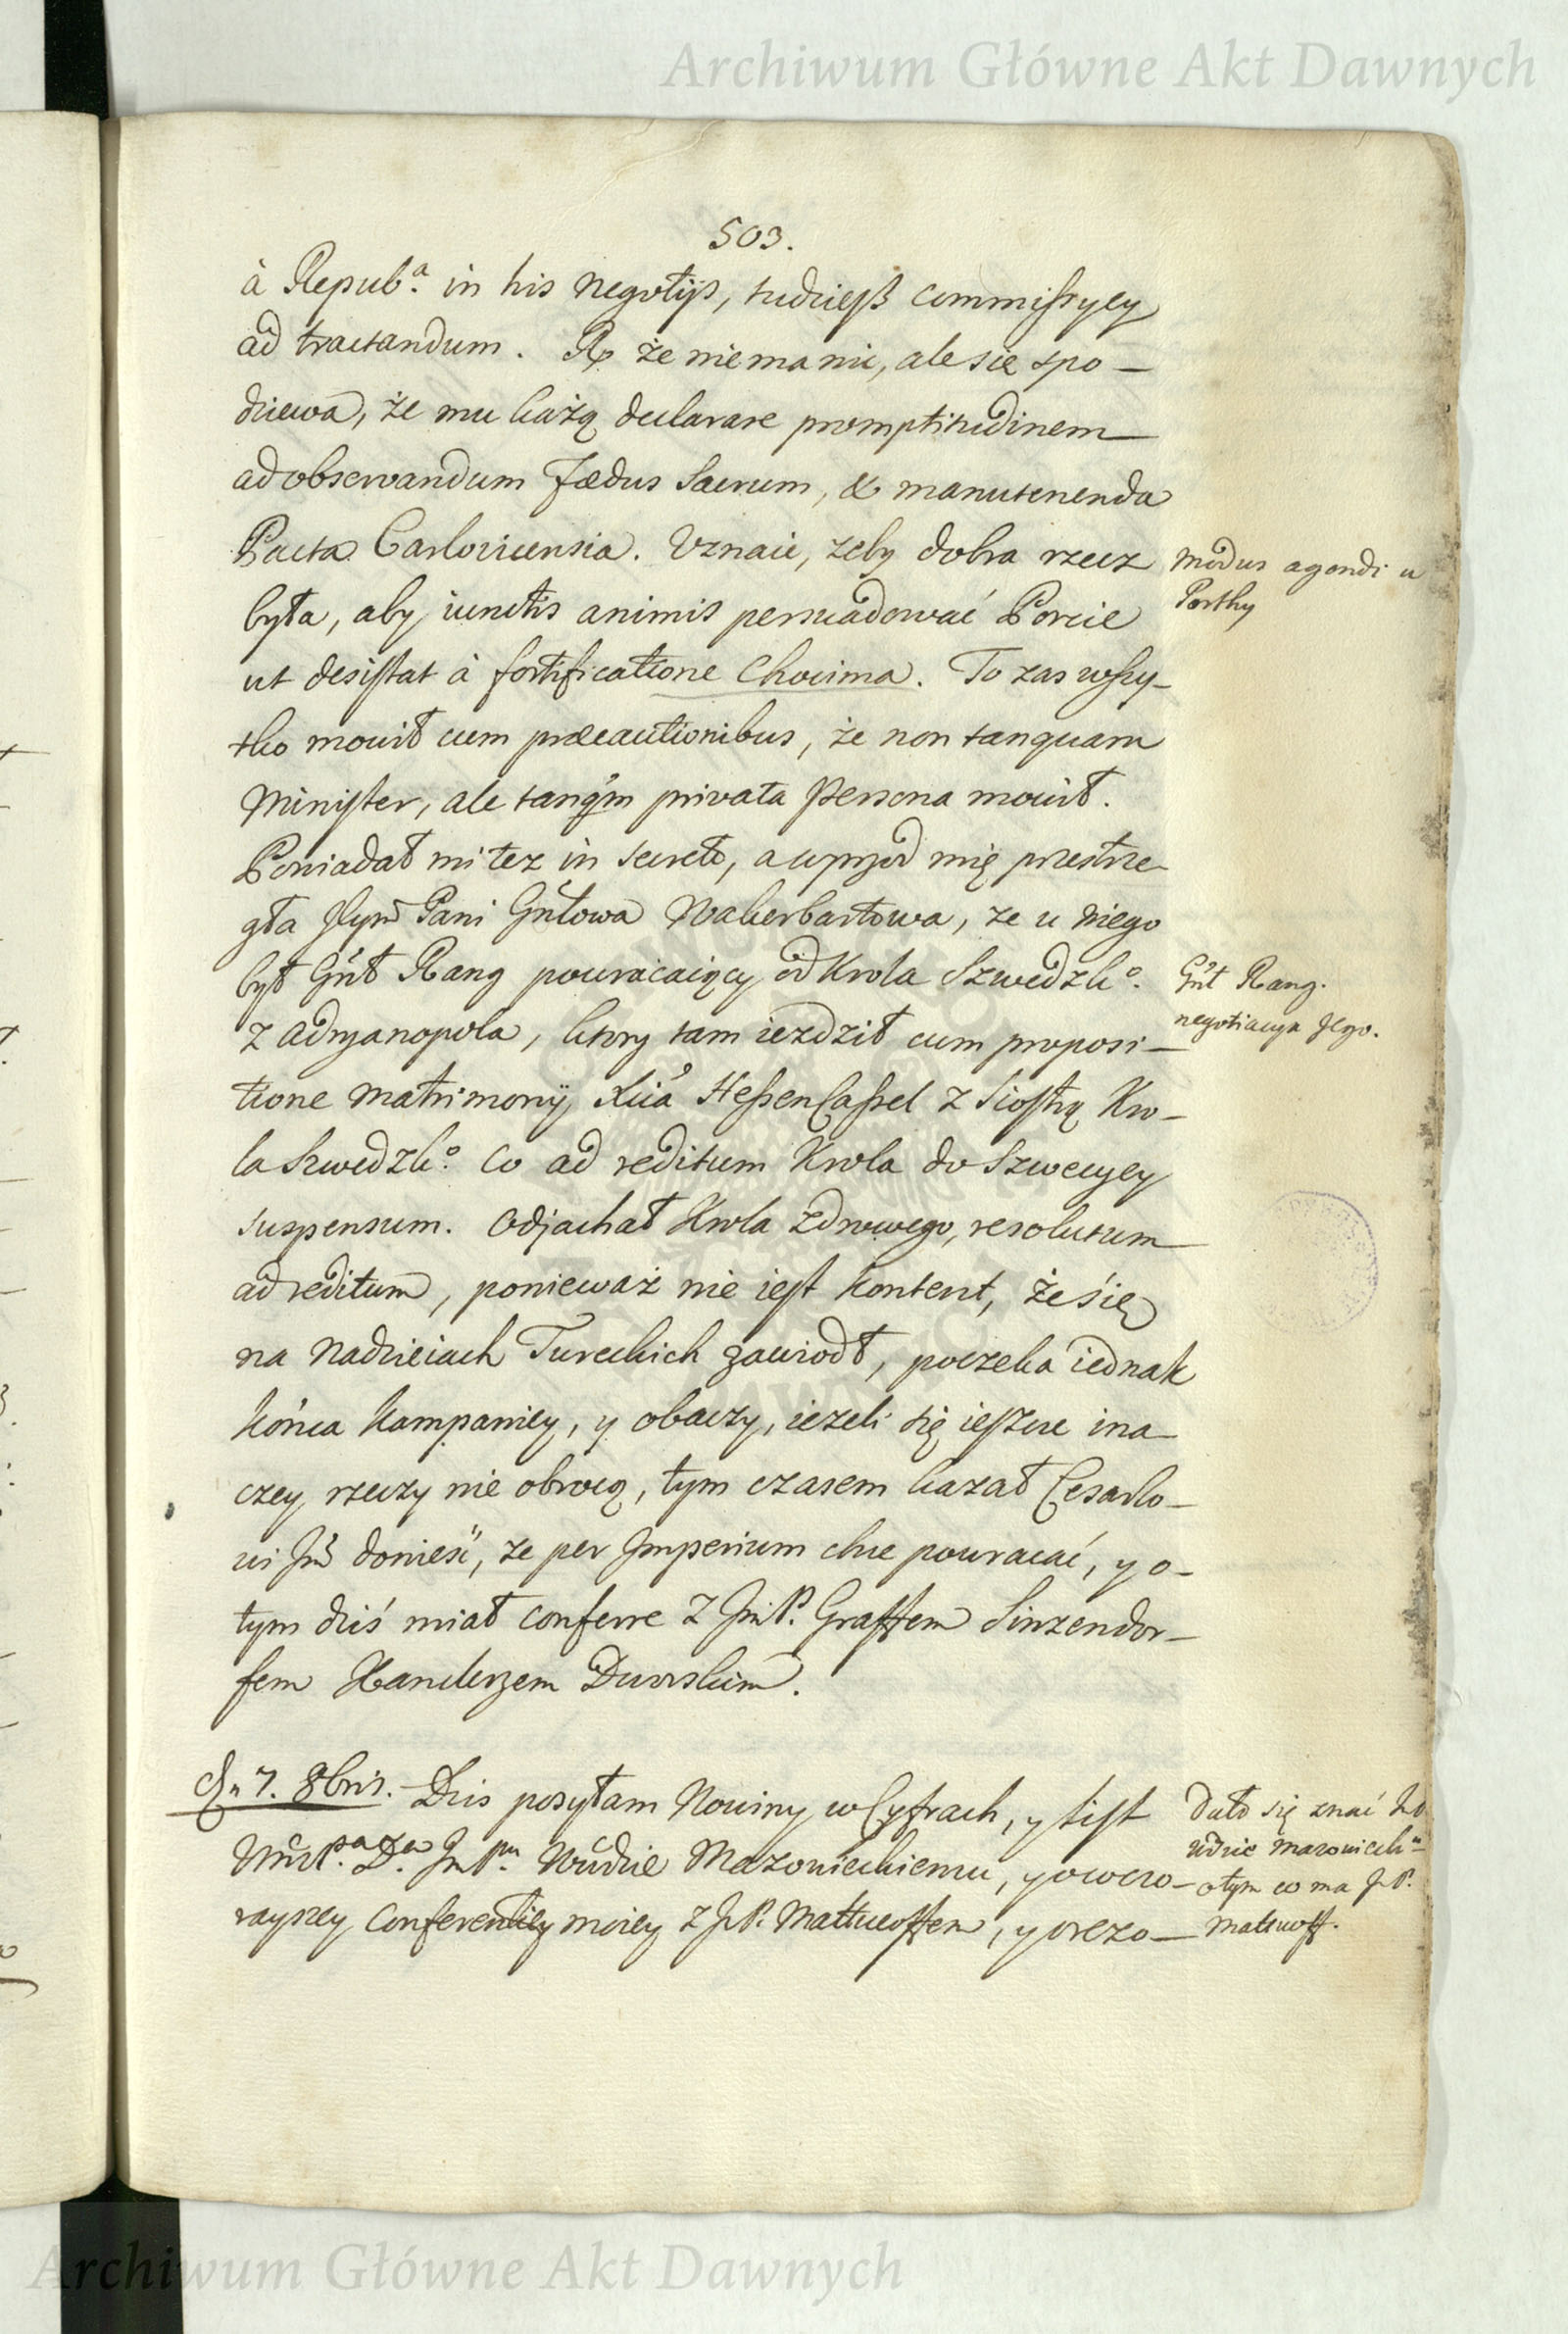 Archiwum Główne Akt Dawnych
503.
à Repub.ª in his negotijs, tudzieß commissyey
ad tractandum. Rp że niema nic, ale się spo-
dziewa, że mu każą declarare promptitudinem
ad observandum Fædus Sacrum, & manutenenda
Pacta Carlovicensia. Uznaie, żeby dobra rzecz
modus agendi u
Porthy
była, aby iunctis animis persuadować Porcie
ut desistat à fortificatione Chocima. To zas wszy-
tko mowił cum præcautionibus, że non tanquam
Minister, ale tanqm privata Persona mowił.
Powiadał mi tez in secreto, a wprzod mię przestrze-
gła Jeym Pani Gnłowa Wakerbartowa, ze u niego
był Gnł Rang powracaiący od Krola Szwedzk.º
Gnł Rang.
negotiacya Jego.
z Adryanopola, ktory tam iezdził cum proposi-
tione matrimonij Xcia HessenCassel z Siostrą Kro-
la Szwedzk.º co ad reditum Krola do Szwecyey
suspensum. Odjachał Krola zdrowego, resolutum
ad reditum, ponieważ nie iest kontent, że się
na nadzieiach Tureckich zawiodł, poczeka iednak
końca kampaniey, y obaczy, iezeli się ieszcze ina-
czey rzeczy nie obrocą, tym czasem kazał Cesarzo-
wi Jmć donieść, ze per Imperium chce powracać, y o-
tym dziś miał conferre z JmP. Graffem Sinzendor-
fem Kanclerzem Dworskim.
7. 8bris. Dzis posyłam Nowiny w Cyfrach, y list
Dało się znać Wo
iewdzie Mazowieck
otym co ma JP.
Mattueoff.
JmPnu Wdzie Mazowieckiemu, y owczo-
rayszey Conferentiey moiey z JP. Mattueoffem, y orezo-
Archiwum Główne Akt Dawnych